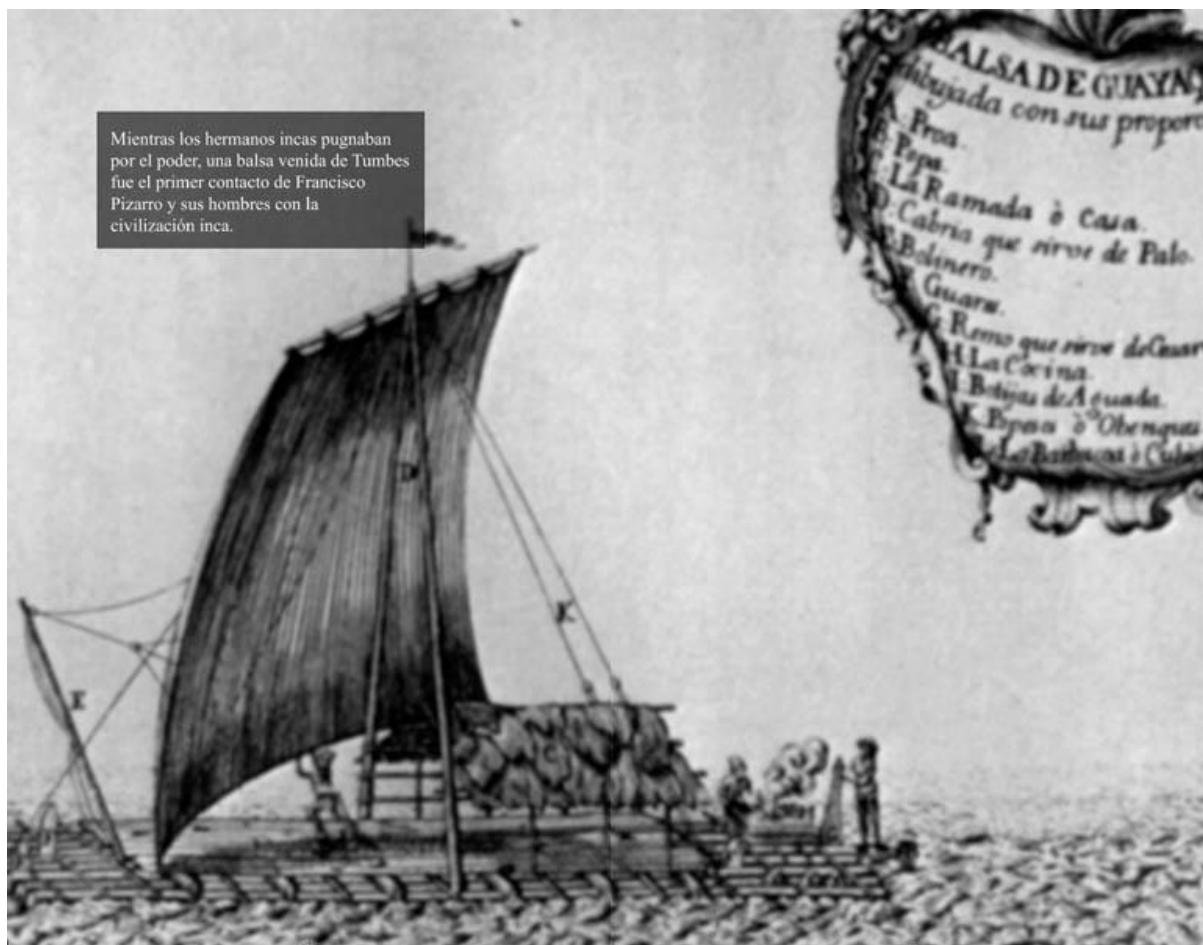 Mientras los hermanos incas pugnaban
por el poder, una balsa venida de Tumbes
fue el primer contacto de Francisco
Pizarro y sus hombres con la
civilización inca.
BALSA DE GUAYA
dibujada con sus propor
A. Proa.
B. Popa.
C. La Ramada ò Casa.
D. Cabria que sirve de Palo.
E. Bolinero.
F. Guare.
G. Remo que sirve de Guar
H. La Cocina.
I. Botijas de Aguada.
K. ò Obenques
D
K
E